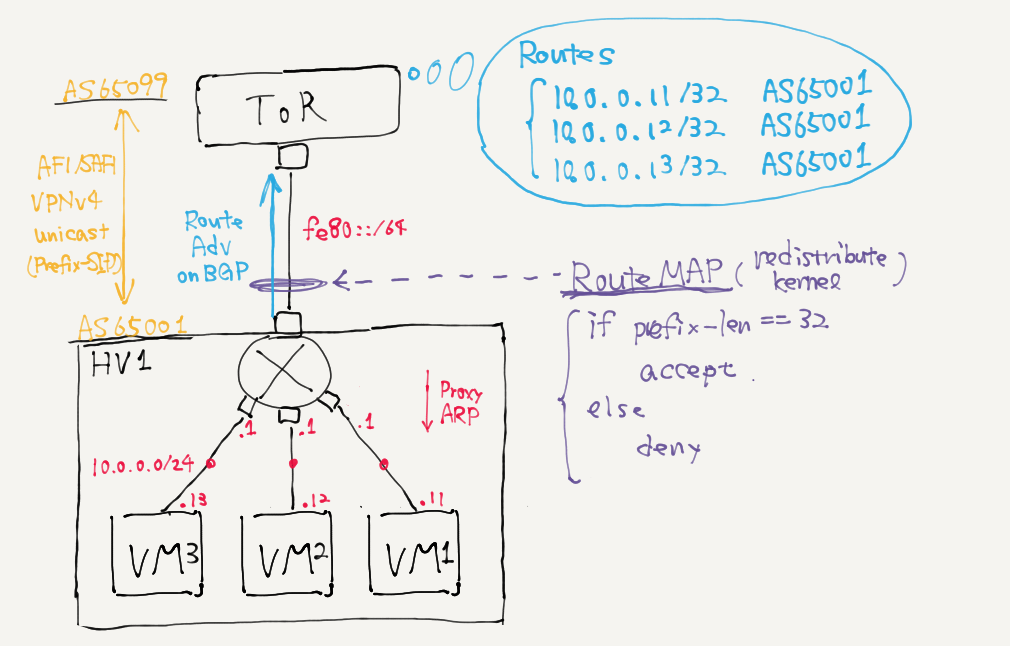 AS65099
ToR
Routes
10.0.0.11/32 AS65001
10.0.0.12/32 AS65001
10.0.0.13/32 AS65001
AFI/SAFI
VPNv4
unicast
(Prefix-SID)
Route
Adv
on BGP
fe80::/64
Route MAP (redistribute
kernel)
if prefix-len == 32
accept
else
deny
AS65001
HV1
Proxy
ARP
.1
.1
.1
10.0.0.0/24
.13
.12
.11
VM3
VM2
VM1